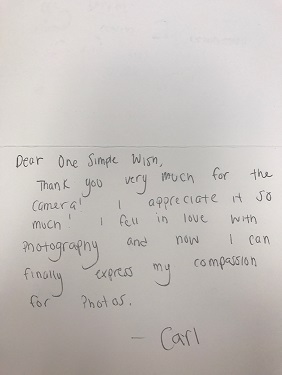 Dear One Simple Wish,
Thank you very much for the
camera! I appreciate it so
much! I fell in love with
photography and now I can
finally express my compassion
for photos.
- Carl